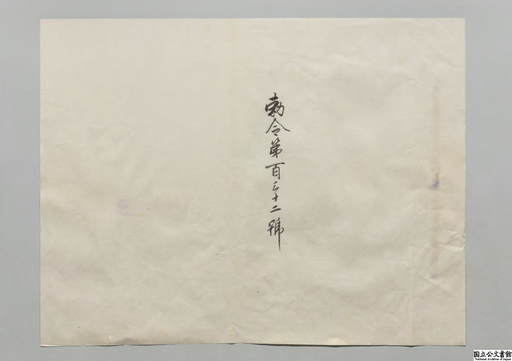 勅令第百三十二號
国立公文書館
National Archives of Japan